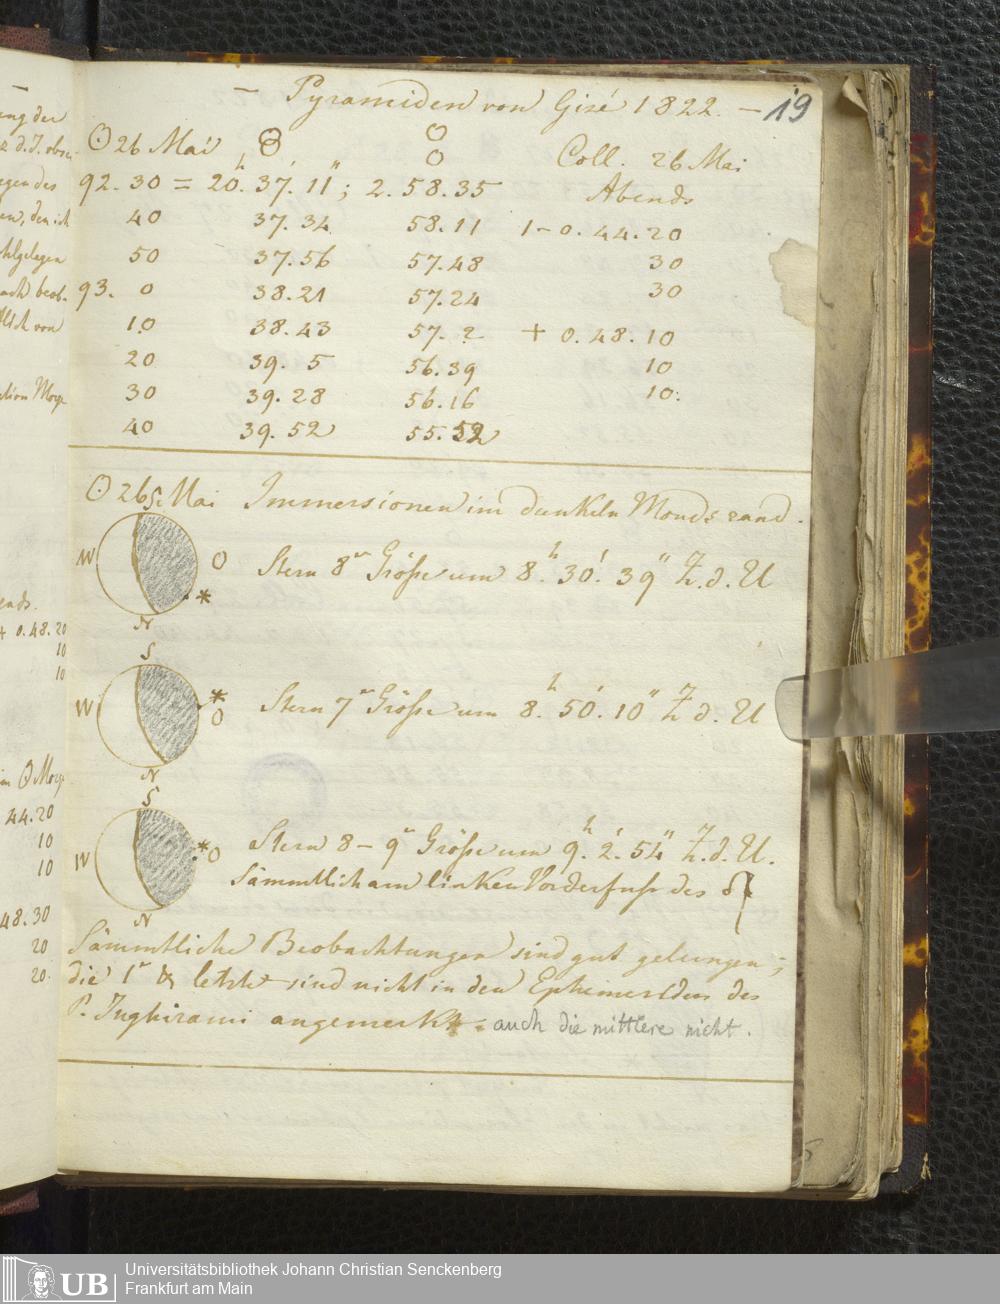 – Pyramiden von Gizé 1822. – 19
☉ 26 Mai Coll. 26 Mai
92. 30 = 20h. 37.' 11"; 2. 58. 35 Abends
40 37. 34 58. 11 1 – 0. 44. 20
50 37. 56 57. 48 30
93. 0 38. 21 57. 24 30
10 38. 43 57. ? + 0. 48. 10
20 39. 5 56. 39 10
30 39. 28 56. 16 10.
40 39. 52 55. 52
☉ 26 Mai Immersionen im dunkeln Mondsrand.
S
W O
Stern 8r Größe um 8.h 30.' 39" Z. d. U
*
N
S
W * O
Stern 7r Größe um 8.h 50.' 10" Z. d. U
N
S
W * O
Stern 8–9r Größe um 9.h 2.' 54" Z. d. U.
Sämmtlich am linken Vorderfuß des
N
Sämmtliche Beobachtungen sind gut gelungen;
die 1r & letzte sind nicht in den Ephemeriden des
P. Inghirami angemerkt. auch die mittlere nicht.
ung der
egen des
en, den ich
ends.
+ 0. 48. 20
10
10
44. 20
10
10
48. 30
20
20.
UB
Universitätsbibliothek Johann Christian Senckenberg
Frankfurt am Main